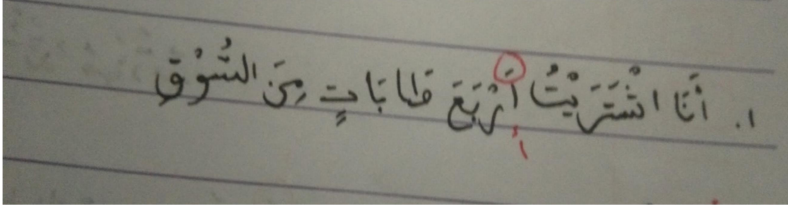 ١. أَنَا اشْتَرَيْتُ أَرْبَعَ طَابَاتٍ مِنَ السُّوْقِ
أ